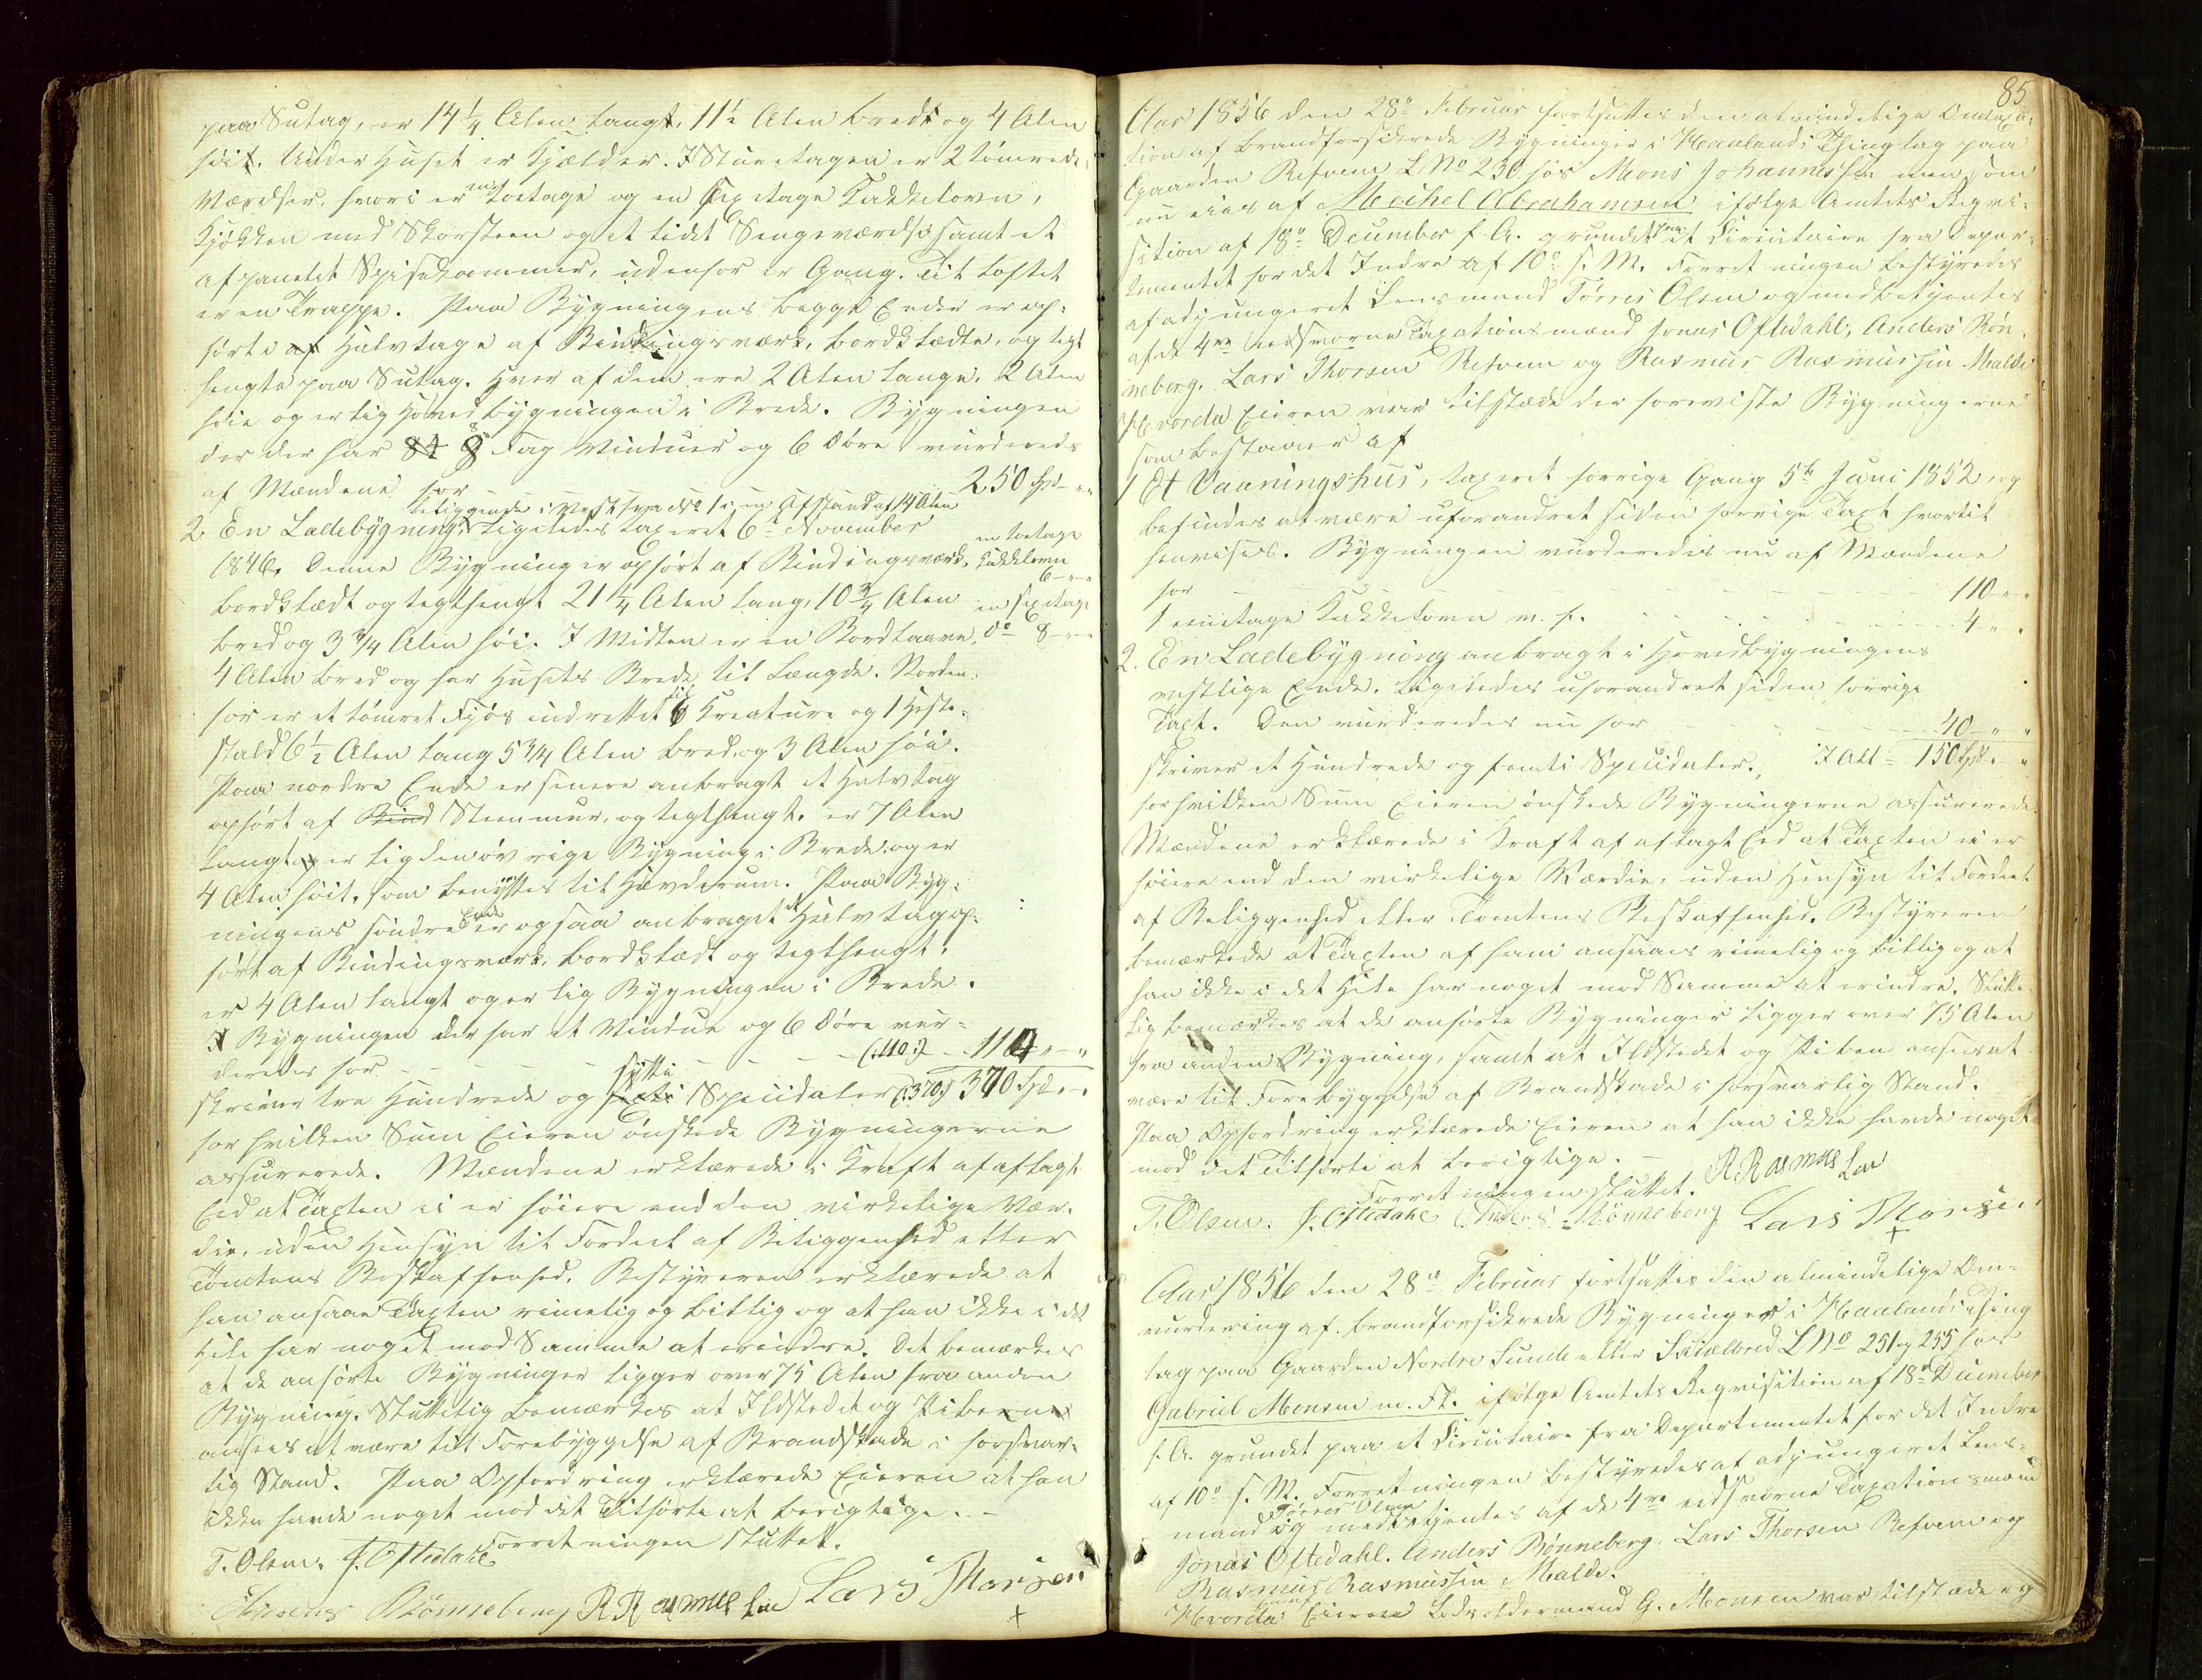 paa Sutag, er 14 1/4 Alen langt, 11 1/2 Alen bredt og 4 Alen
höit. Under Huset er Kjælder. I Stueetagen er 2 tömrede
Værelser, hvori er en toetage og en sexetage Kakkelovn,
Kjökken med Skorsteen og et lidet Sengeværelse samt et
afpanelet Spisekammer, udenfor er Gang. Til Loftet
er en Trappe. Paa Bygningens begge Ender er op-
förte af Halvtage af Bindingsværk, bordklædte, og tegl
hengte paa Sutag. Hver af dem ere 2 Alen lange, 2 Alen
höie og er lig Hovedbygningen i Brede. Bygningen
der der har 8 Fag Vinduer og 6 Döre vurderedes
af Mændene for 250 Spd - "
2. En Ladebygning, beliggende i Vest fra No 1 i en Afstand af 14 Alen ligeledes taxeret 6te November
1846. Denne Bygning er opfört af Bindingsværk, en toetage Kakkelovn 6 - " - "
bordklædt og teglhengt 21 1/4 Alen lang, 10 3/4 Alen en sexetage
bred og 3 3/4 Alen höi. I Midten er en Bordlaave, do 8 - " - "
4 Alen bred og har Husets Brede til Længde. Norden-
for er et tömret Fjös indrettet til 6 Kreature og 1 Heste-
stald 6 1/2 Alen lang 5 3/4 Alen bred, og 3 Alen höi.
Paa nordre Ende er senere anbragt et Halvtag
opfört af Bind Steenmur, og teglhengt, er 7 Alen
langt og er lig den övrige Bygning i Brede, og er
4 Alen höit, som benyttes til Hævderum. Paa Byg-
ningens söndre Ende er ogsaa anbraget et Halvtag op-
fört af Bindingsværk, bordklædt og teglhengt,
er 4 Alen langt og er lig Bygningen i Brede.
Bygningen der har et Vindue og 6 Döre vur-
deredes for - - - - - (:110:) - 110 " - "
skriver tre Hundrede og sexti sytti Speciedaler (:370:) 370 Spd " - "
for hvilken Sum Eieren önskede Bygningerne
assurerede. Mændene erklærede i Kraft af aflagt
Eed at Taxten ei er höiere end den virkelige Vær-
die, uden Hensyn til Fordeel af Beliggenhed eller
Tomtens Beskaffenhed. Bestyreren erklærede at
han ansaae Taxten rimelig og billig og at han ikke i det
Hele har noget mod Samme at erindre. Det bemærkes
at de anförte Bygninger ligger over 75 Alen fra anden
Bygning. Sluttelig bemærkes at Ildstedet og Piberne
ansees at være til Forebyggelse af Brandskade i forsvar-
lig Stand. Paa Opfordring erklærede Eieren at han
ikke havde noget mod det Tilförte at berigtige. -
Forretningen sluttet.
T. Olsen. J. Oftedahl
Anders Rönneberg R Rasmussen Lars Thorsen
+
85
Aar 1856 den 28de Februar fortsattes den almindelige Omtaxa-
tion af brandforsikrede Bygninger i Haalands Thinglag paa
Gaarden Refvem LNo 230 hos Mons Johannessen men som
nu eies af Meichel Abrahamsen ifölge Amtets Reqvi-
sition af 18de December f. A. grundet paa et Circulaire fra Depar-
tementet for det Indre af 10de s. M. Forretningen bestyredes
af adjungeret Lensmand Törres Olsen og medbetjentes
af de 4re eedsvorne Taxationsmænd Jonas Oftedahl, Anders Rön-
neberg, Lars Thorsen Refvem og Rasmus Rasmussen Malde
Hvorda Eieren var tilstæde der foreviste Bygningerne
som bestaaer af
1 Et Vaaningshus, taxeret forrige Gang 5te Juni 1852, og
befindes at være uforandret siden forrige Taxt hvortil
henvises. Bygningen vurderedes nu af Mændene
for - - - - - - - 110 - " "
1 enetage Kakkelovn v. f. - - - - - 4 - " "
2. En Ladebygning anbragt i Hovedbygningens
vestlige Ende. Ligeledes uforandret siden forrige
Taxt. Den vurderedes nu for - - - 40 - " "
skriver et Hundrede og femti Speciedaler, I Alt = 150 Spd. "
for hvilken Sum Eieren önskede Bygningerne assurerede.
Mændene erklærede i Kraft af aflagt Eed at Taxten ei er
höiere end den virkelige Værdie, uden Hensyn til Fordeel
af Beliggenhed eller Tomtens Beskaffenhed. Bestyreren
bemærkede at Taxten af ham ansaaes rimelig og billig og at
han ikke i det Hele har noget mod Samme at erindre. Slutte-
lig bemærkes at de anförte Bygninger ligger over 75 Alen
fra anden Bygning, samt at Ildstedet og Piben ansees at
være til Forebyggelse af Brandskade i forsvarlig Stand.
Paa Opfordring erklærede Eieren at han ikke havde noget
mod det Tilförte at berigtige. -
Forretningen sluttet. R Rasmussen
T. Olsen. J. Oftedahl Anders Rönneberg Lars Thorsen
+
Aar 1856 den 28de Februar fortsattes den almindelige Om-
vurdering af brandforsikrede Bygninger i Haalands Thing
lag paa Gaarden Nordre Sunde eller LNo 251 og 255 hos
Gabriel Monsen m. Fl. ifölge Amtets Reqvisition af 18de December
f. A. grundet paa et Circulaire fra Departementet for det Indre
af 10de s. M. Forretningen bestyredes af adjungeret Lens-
mand Törres Olsen og medbetjentes af de 4re eedsvorne Taxationsmænd
Jonas Oftedahl, Anders Rönneberg, Lars Thorsen Refvem og
Rasmus Rasmussen Malde.
Hvorda Eieren G. Monsen var tilstæde og